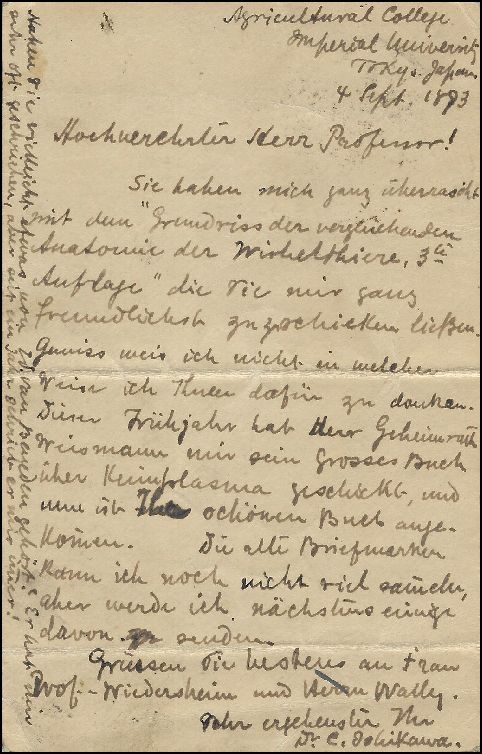 Agricultural College
Imperial University
Tokyo. Japan
4 Sept. 1893
Hochverehrter Herr Professor!
Sie haben mich ganz überrascht
mit dem "Grundriss der vergleichenden
Anatomie der Wirbelthiere, 3te
Auflage" die Sie mir ganz
freundlichst zuzschicken ließen.
Gewiss weis ich nicht in welcher
Weise ich Ihnen dafür zu danken.
Dieser Frühjahr hat Herr Geheimrath
Weismann mir sein grosses Buch
über Keimplasma geschickt, und
nun ist Ihr schönen Buch ange-
komen. Die alte Briefmarken
kann ich noch nicht viel sameln,
aber werde ich nächstens einige
davon zu senden.
Grüssen Sie bestens an Frau
Prof. Wiedersheim und Herrn Wally.
Sehr ergebenster Ihr
Dr C. Ishikawa.
Haben Sie vielleicht etwas von Ed. van Beneden gehört? Er hat mir
sehr oft geschrieben, aber seit ein Jahr schrieb er mir nimer!